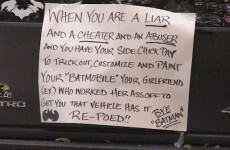 WHEN YOU ARE A LIAR
AND A CHEATER AND AN ABUSER
AND YOU HAVE YOUR SIDE CHICK PAY
TO TRICK OUT, CUSTOMIZE AND PAINT
YOUR "BATMOBILE" YOUR GIRLFRIEND
(EX) WHO WORKED HER ASS OFF TO
GET YOU THAT VEHICLE HAS IT
RE-POED!!
BYE
"BATMAN"